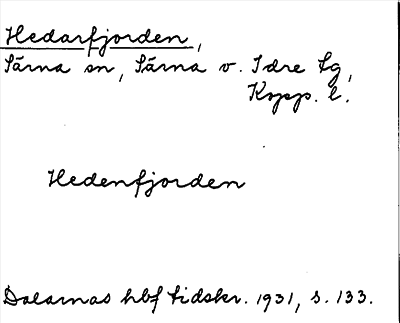 Hedarfjorden,
Särna sn, Särna v. Idre tg,
Kopp. l.
Hedenfjorden
Dalarnas hbf tidskr. 1931, s. 133.